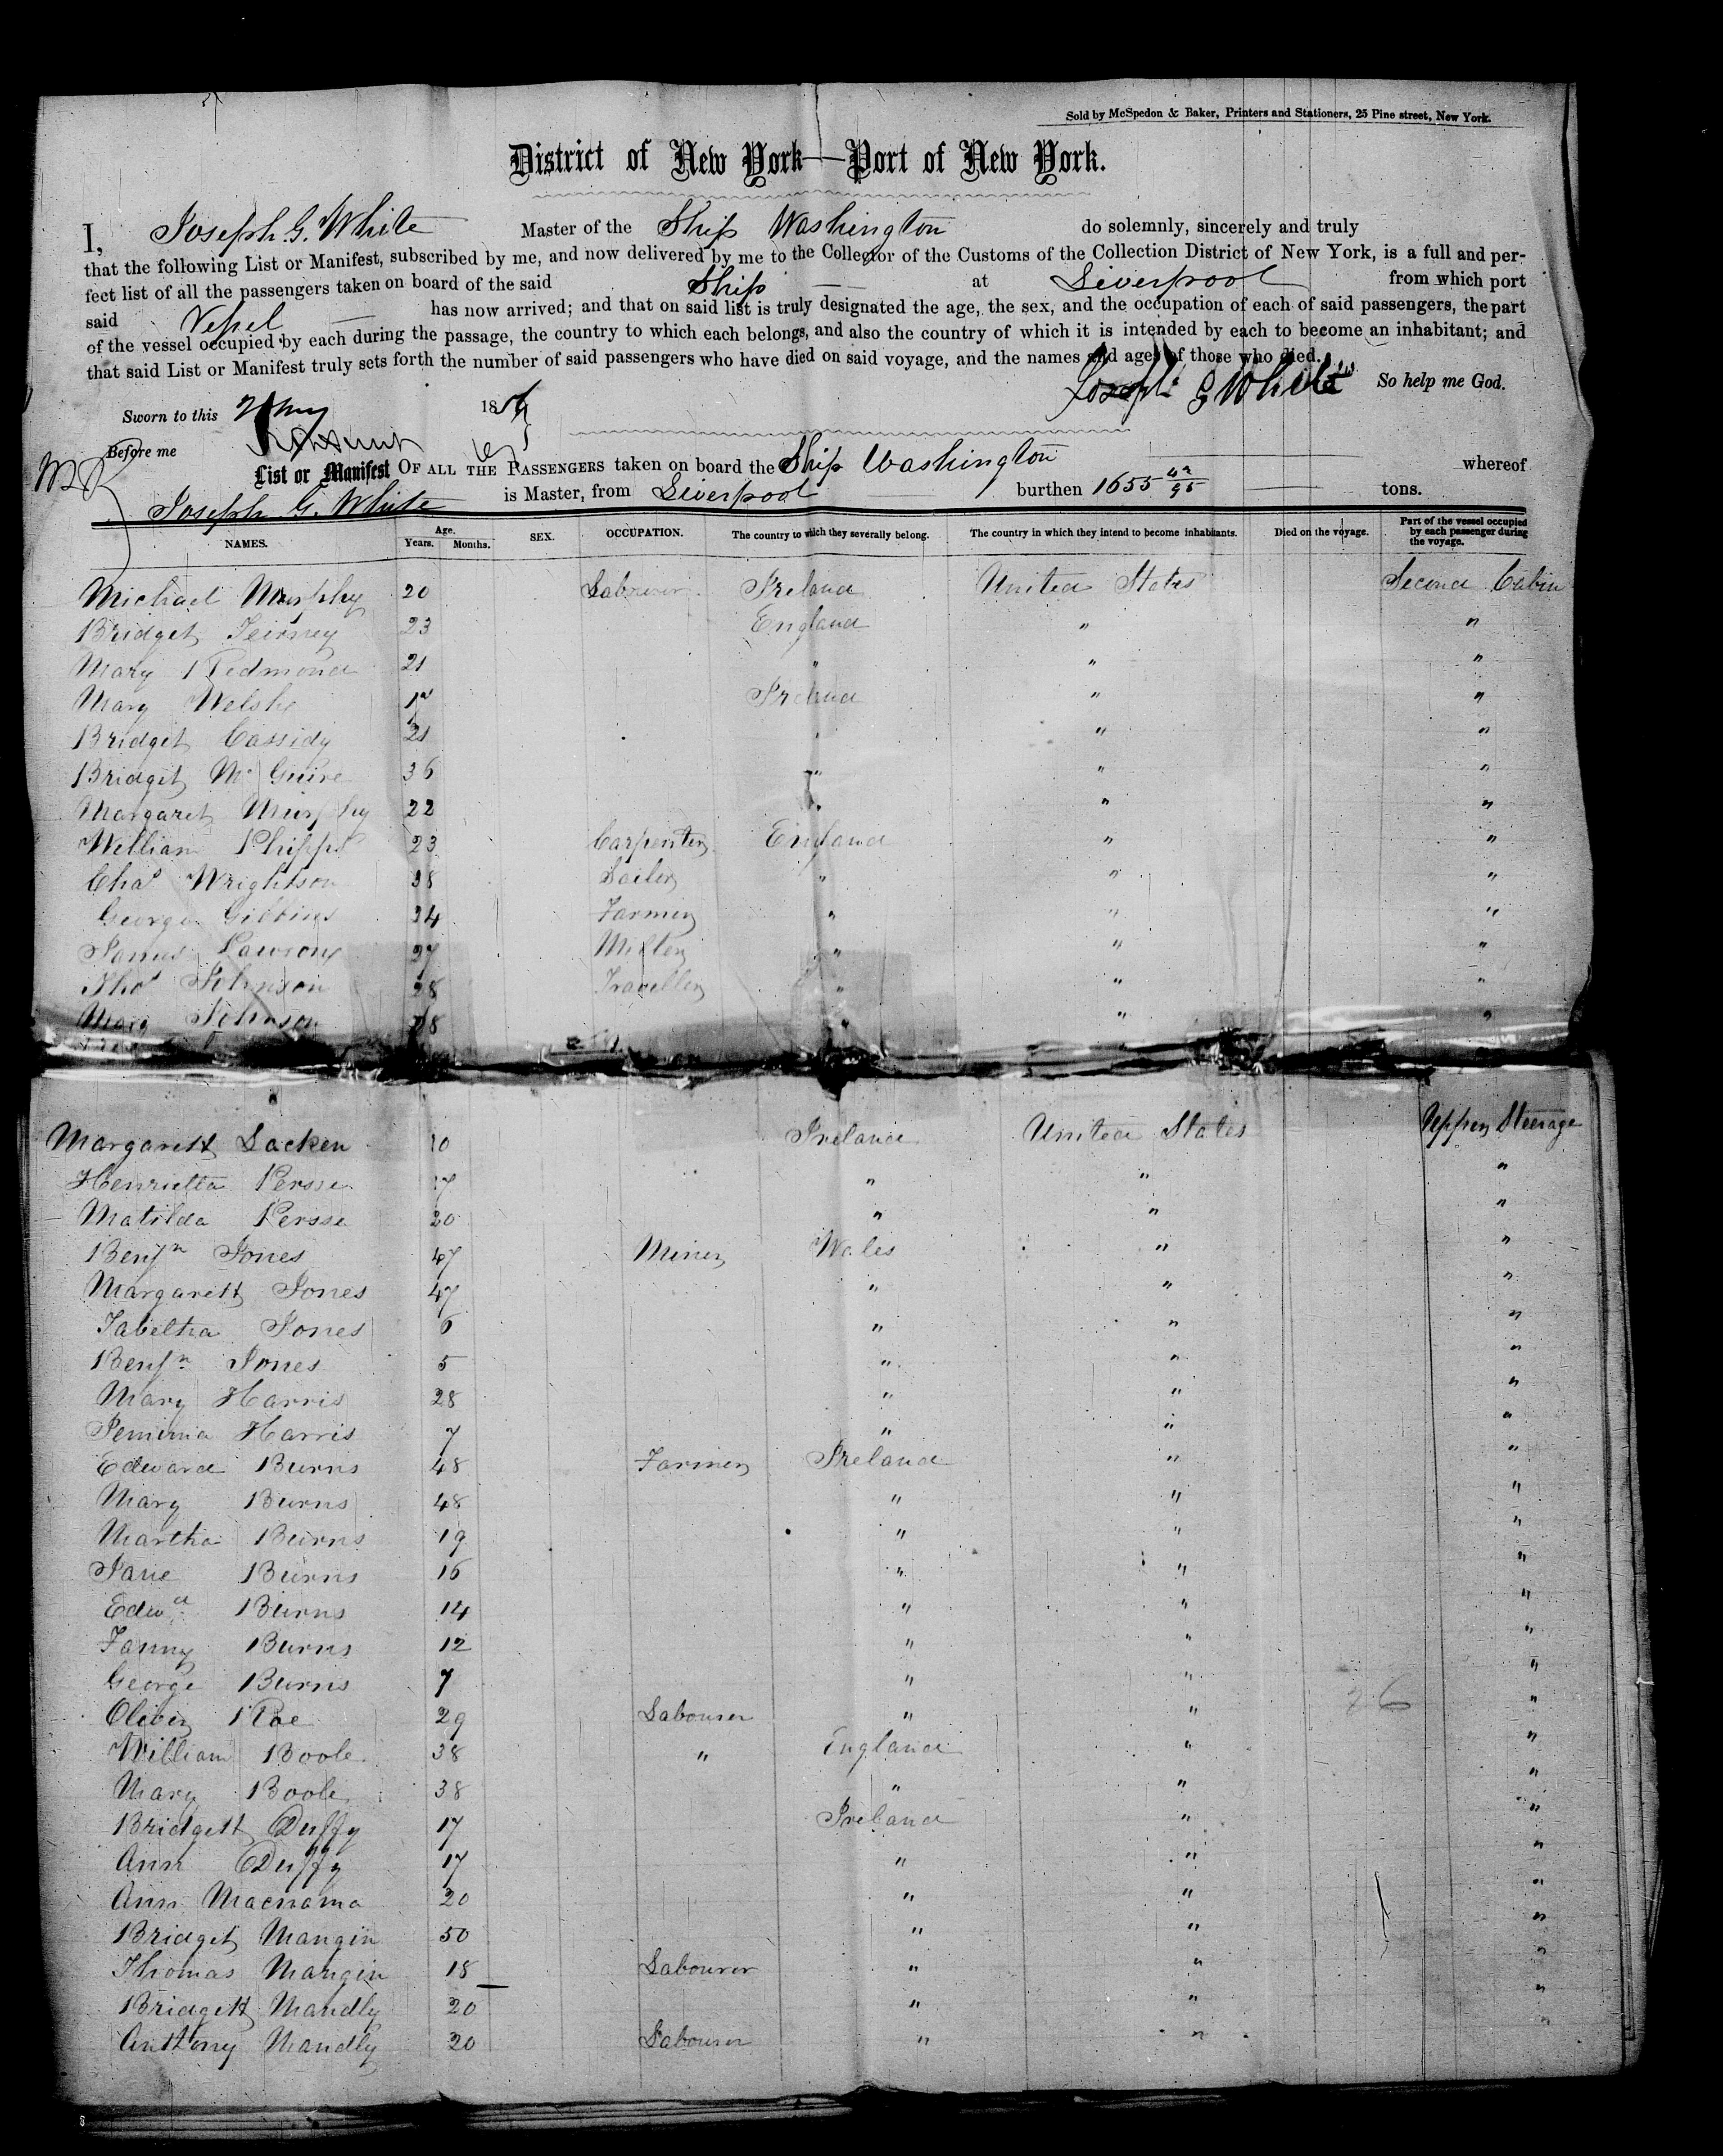 Sold by McSpedon & Baker, Printers and Stationers, 25 Pine street, New York.
District of New York—Port of New York.
I, Joseph G. White Master of the Ship Washington do solemnly, sincerely and truly
that the following List or Manifest, subscribed by me, and now delivered by me to the Collector of the Customs of the Collection District of New York, is a full and per-
fect list of all the passengers taken on board of the said Ship at Liverpool from which port
said Vessel has now arrived; and that on said list is truly designated the age, the sex, and the occupation of each of said passengers, the part
of the vessel occupied by each during the passage, the country to which each belongs, and also the country of which it is intended by each to become an inhabitant; and
that said List or Manifest truly sets forth the number of said passengers who have died on said voyage, and the names and ages of those who died.
Joseph G White So help me God.
Sworn to this 185
Before me
List or Manifest OF ALL THE PASSENGERS taken on board the Ship Washington whereof
Joseph G. White is Master, from Liverpool burthen 1655 42/95 tons.
NAMES. Age. Years. Months. SEX. OCCUPATION. The country to which they severally belong. The country in which they intend to become inhabitants. Died on the voyage. Part of the vessel occupied by each passenger during the voyage.
Michael Murphy 20 Labourer Ireland United States Second Cabin
Bridget 23 England " "
Mary Redmond 21 " " "
Mary Welsh Ireland " "
Bridget Cassidy 21 " " "
Bridget Mc Guire 36 " " "
Margaret Murphy 22 " " "
William Phipps 23 Carpenter England " "
Chas Wrightson 38 Sailor " " "
George Gibbins 34 Farmer " " "
James Lawson 27 Miller " " "
Thos Johnson 28 Traveller " " "
Mary Johnson 28 " " "
Margarett Lacken 10 Ireland United States Upper Steerage
Henrietta Persse 17 " " "
Matilda Persse 20 " " "
Benjn Jones 47 Miner Wales " "
Margarett Jones 47 " " "
Tabeltha Jones 6 " " "
Benjn Jones 5 " " "
Mary Harris 28 " " "
Jemima Harris 7 " " "
Edward Burns 48 Farmer Ireland " "
Mary Burns 48 " " "
Martha Burns 19 " " "
Jane Burns 16 " " "
Edwd Burns 14 " " "
Fanny Burns 12 " " "
George Burns 7 " " "
Oliver Roe 29 Labourer " " "
William Boole 38 " England " "
Mary Boole 38 " " "
Bridgett Duffy 17 Ireland " "
Ann Duffy 17 " " "
Ann Macnama 20 " " "
Bridget Mangin 50 " " "
Thomas Mangin 18 Labourer " " "
Bridgett Mandly 20 " " "
Anthony Mandly 20 Labourer " " "